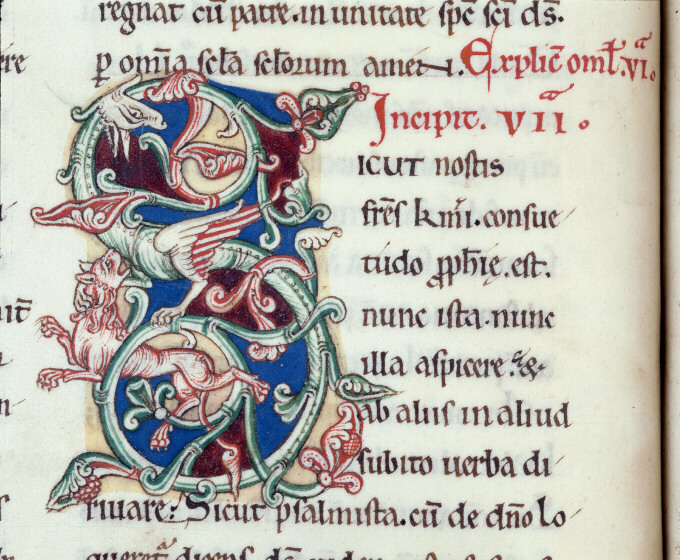 regnat cū patre. in unitate sp̄c sc̄i ds̄.
ꝑ omīa sc̄la sc̄lorum amen. Explic̄ omł. vi.ᵃ
Incipit. vii.ᵃ
SICUT nostis
fr̄es k̄mi. consue
tudo ꝓph̄ię. est.
nunc ista. nunc
illa aspicere. &
ab aliis in aliud
subito uerba di
riuare; Sicut psalmista. cū de dn̄o lo